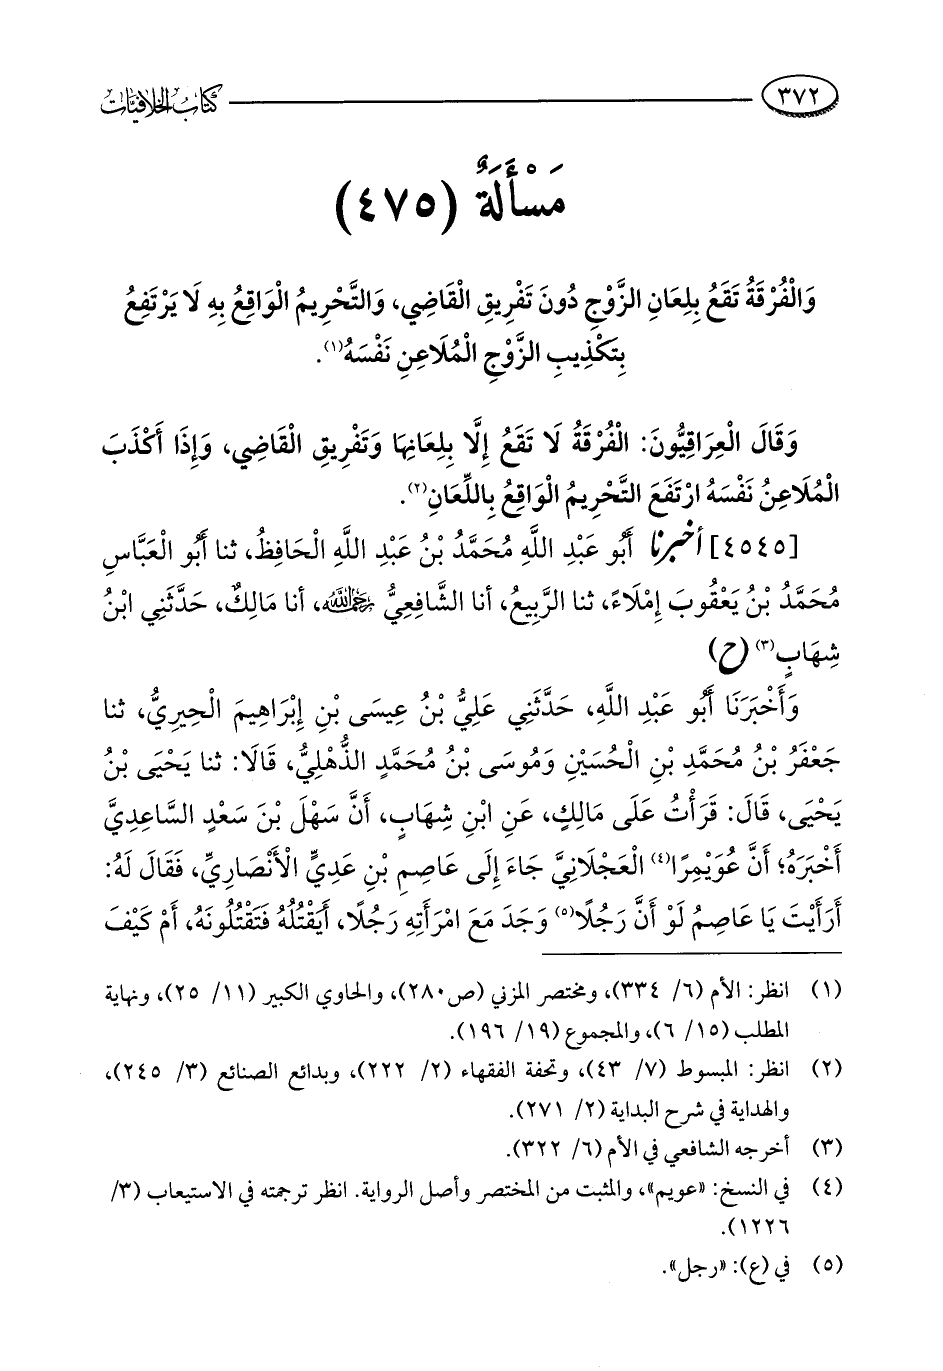 ٣٧٢ كتاب الخلافيات
مَسْأَلَةٌ (٤٧٥)
وَالْفُرْقَةُ تَقَعُ بِلِعَانِ الزَّوْجِ دُونَ تَفْرِيقِ الْقَاضِي، وَالتَّحْرِيمُ الْوَاقِعُ بِهِ لَا يَرْتَفِعُ
بِتَكْذِيبِ الزَّوْجِ الْمُلَاعِنِ نَفْسَهُ(١).
وَقَالَ الْعِرَاقِيُّونَ: الْفُرْقَةُ لَا تَقَعُ إِلَّا بِلِعَانِهَا وَتَفْرِيقِ الْقَاضِي، وَإِذَا أَكْذَبَ
الْمُلَاعِنُ نَفْسَهُ ارْتَفَعَ التَّحْرِيمُ الْوَاقِعُ بِاللِّعَانِ(٢).
[٤٥٤٥] أخبرنا أَبُو عَبْدِ اللَّهِ مُحَمَّدُ بْنُ عَبْدِ اللَّهِ الْحَافِظُ، ثنا أَبُو الْعَبَّاسِ
مُحَمَّدُ بْنُ يَعْقُوبَ إِمْلَاءً، ثنا الرَّبِيعُ، أنا الشَّافِعِيُّ رحمه الله، أنا مَالِكٌ، حَدَّثَنِي ابْنُ
شِهَابٍ(٣) (ح)
وَأَخْبَرَنَا أَبُو عَبْدِ اللَّهِ، حَدَّثَنِي عَلِيُّ بْنُ عِيسَى بْنِ إِبْرَاهِيمَ الْحِيرِيُّ، ثنا
جَعْفَرُ بْنُ مُحَمَّدِ بْنِ الْحُسَيْنِ وَمُوسَى بْنُ مُحَمَّدٍ الذُّهْلِيُّ، قَالَا: ثنا يَحْيَى بْنُ
يَحْيَى، قَالَ: قَرَأْتُ عَلَى مَالِكٍ، عَنِ ابْنِ شِهَابٍ، أَنَّ سَهْلَ بْنَ سَعْدٍ السَّاعِدِيَّ
أَخْبَرَهُ؛ أَنَّ عُوَيْمِرًا(٤) الْعَجْلَانِيَّ جَاءَ إِلَى عَاصِمِ بْنِ عَدِيٍّ الْأَنْصَارِيِّ، فَقَالَ لَهُ:
أَرَأَيْتَ يَا عَاصِمُ لَوْ أَنَّ رَجُلًا(٥) وَجَدَ مَعَ امْرَأَتِهِ رَجُلًا، أَيَقْتُلُهُ فَتَقْتُلُونَهُ، أَمْ كَيْفَ
(١) انظر: الأم (٦/ ٣٣٤)، ومختصر المزني (ص٢٨٠)، والحاوي الكبير (١١/ ٢٥)، ونهاية
المطلب (١٥/ ٦)، والمجموع (١٩/ ١٩٦).
(٢) انظر: المبسوط (٧/ ٤٣)، وتحفة الفقهاء (٢/ ٢٢٢)، وبدائع الصنائع (٣/ ٢٤٥)،
والهداية في شرح البداية (٢/ ٢٧١).
(٣) أخرجه الشافعي في الأم (٦/ ٣٢٢).
(٤) في النسخ: «عويم»، والمثبت من المختصر وأصل الرواية. انظر ترجمته في الاستيعاب (٣/
١٢٢٦).
(٥) في (ع): «رجل».